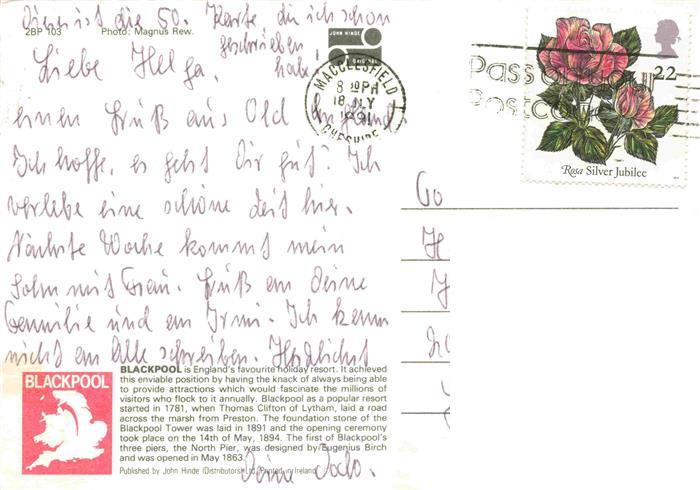 Dies ist die 50. Karte die ich schon
geschrieben
habe.
2BP 103 Photo: Magnus Rew.
JOHN HINDE
ORIGINAL
Liebe Helga,
einen Gruß aus Old England.
Ich hoffe, es geht Dir gut? Ich
verlebe eine schöne Zeit hier.
Nächste Woche kommt mein
Sohn mit Frau. Gruß an Deine
Familie und an Irmi. Ich kann
nicht an Alle schreiben. Herzlichst
Deine
MACCLESFIELD
8 PM
18 JLY
1991
CHESHIRE
Pass
Postco
22
Rosa Silver Jubilee
BLACKPOOL
BLACKPOOL is England's favourite holiday resort. It achieved
this enviable position by having the knack of always being able
to provide attractions which would fascinate the millions of
visitors who flock to it annually. Blackpool as a popular resort
started in 1781, when Thomas Clifton of Lytham, laid a road
across the marsh from Preston. The foundation stone of the
Blackpool Tower was laid in 1891 and the opening ceremony
took place on the 14th of May, 1894. The first of Blackpool's
three piers, the North Pier, was designed by Eugenius Birch
and was opened in May 1863.
Published by John Hinde (Distributors) Ltd. Printed in Ireland